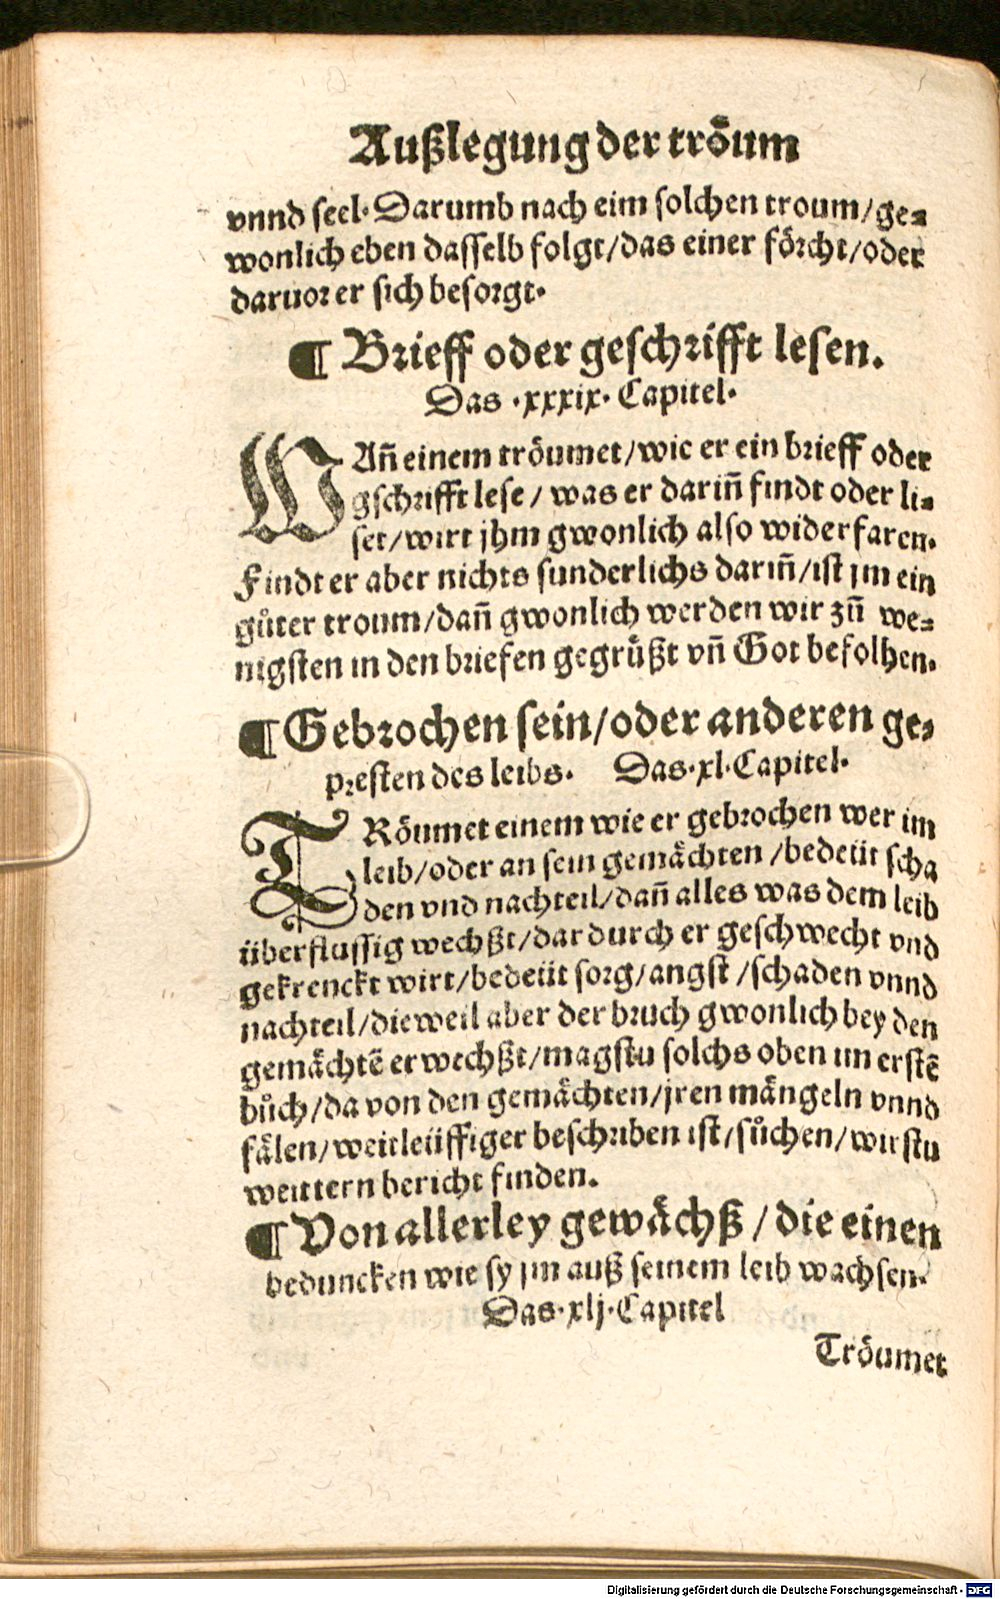 Außlegung der tröum
vnnd seel· Darumb nach eim solchen troum/ge⸗
wonlich eben dasselb folgt/das einer förcht/oder
daruor er sich besorgt·
¶ Brieff oder geschrifft lesen.
Das ·xxxix· Capitel·
WAñ einem tröumet/wie er ein brieff oder
gschrifft lese / was er dariñ findt oder li⸗
set/wirt jhm gwonlich also widerfaren.
Findt er aber nichts sunderlichs dariñ/ist jm ein
gůter troum/dañ gwonlich werden wir zũ we⸗
nigsten in den briefen gegrüßt vñ Got befolhen.
¶ Gebrochen sein/oder anderen ge⸗
presten des leibs. Das·xl·Capitel·
TRöumet einem wie er gebrochen wer im
leib/oder an sein gemächten /bedeüt scha
den vnd nachteil/dañ alles was dem leib
überflussig wechßt/dardurch er geschwecht vnd
gekrenckt wirt/bedeüt sorg/angst /schaden vnnd
nachteil/dieweil aber der bruch gwonlich bey den
gemächtẽ erwechßt/magstu solchs oben im erstẽ
bůch/da von den gemächten/jren mängeln vnnd
fälen/weitleüffiger beschriben ist/sůchen/wirstu
weittern bericht finden.
¶ Von allerley gewächß /die einen
beduncken wie sy jm auß seinem leib wachsen·
Das·xlj·Capitel
Tröumet
Digitalisierung gefördert durch die Deutsche Forschungsgemeinschaft - DFG